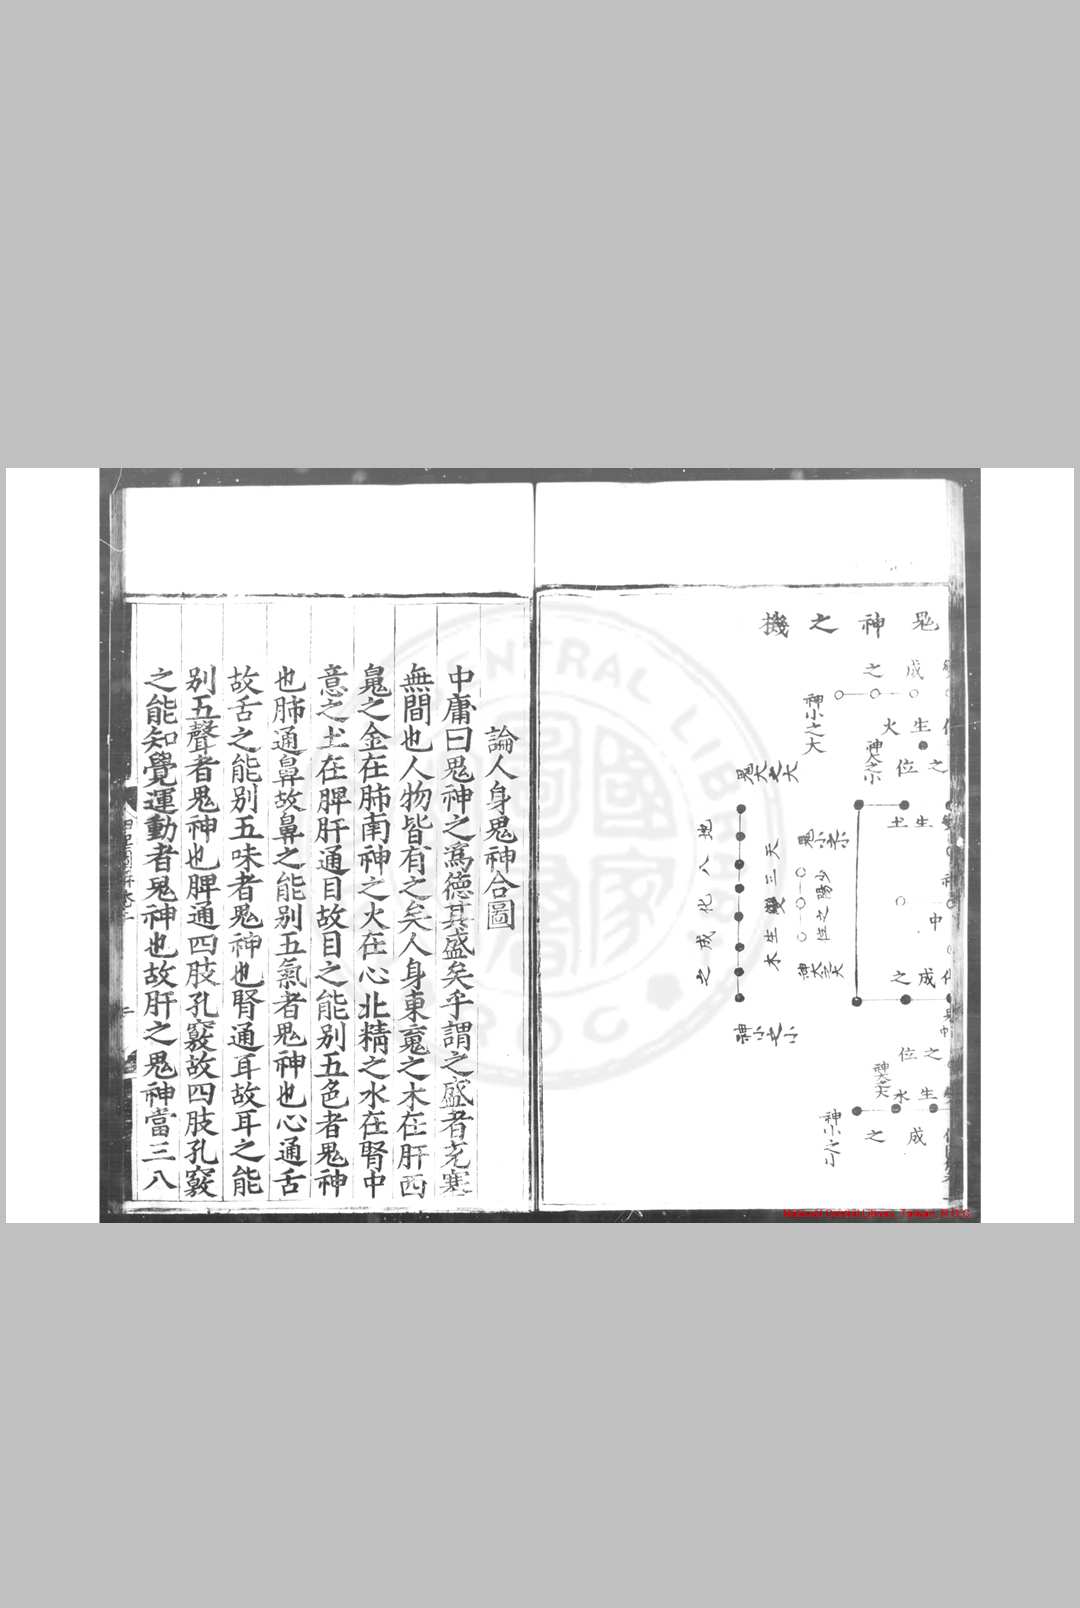 鬼神之機
成之
生火
之位
神小之大
神大之小
鬼大之大
生土
中
成之
天三變生木
少陽之位
鬼小之小
神大之大
地八化成之
神小之小
之位
生水
成之
神小之小
論人身鬼神合圖
中庸曰鬼神之爲德其盛矣乎謂之盛者充塞
無間也人物皆有之矣人身東䰟之木在肝西
䰟之金在肺南神之火在心北精之水在腎中
意之土在脾肝通目故目之能别五色者鬼神
也肺通鼻故鼻之能别五氣者鬼神也心通舌
故舌之能别五味者鬼神也腎通耳故耳之能
别五聲者鬼神也脾通四肢孔竅故四肢孔竅
之能知覺運動者鬼神也故肝之鬼神當三八